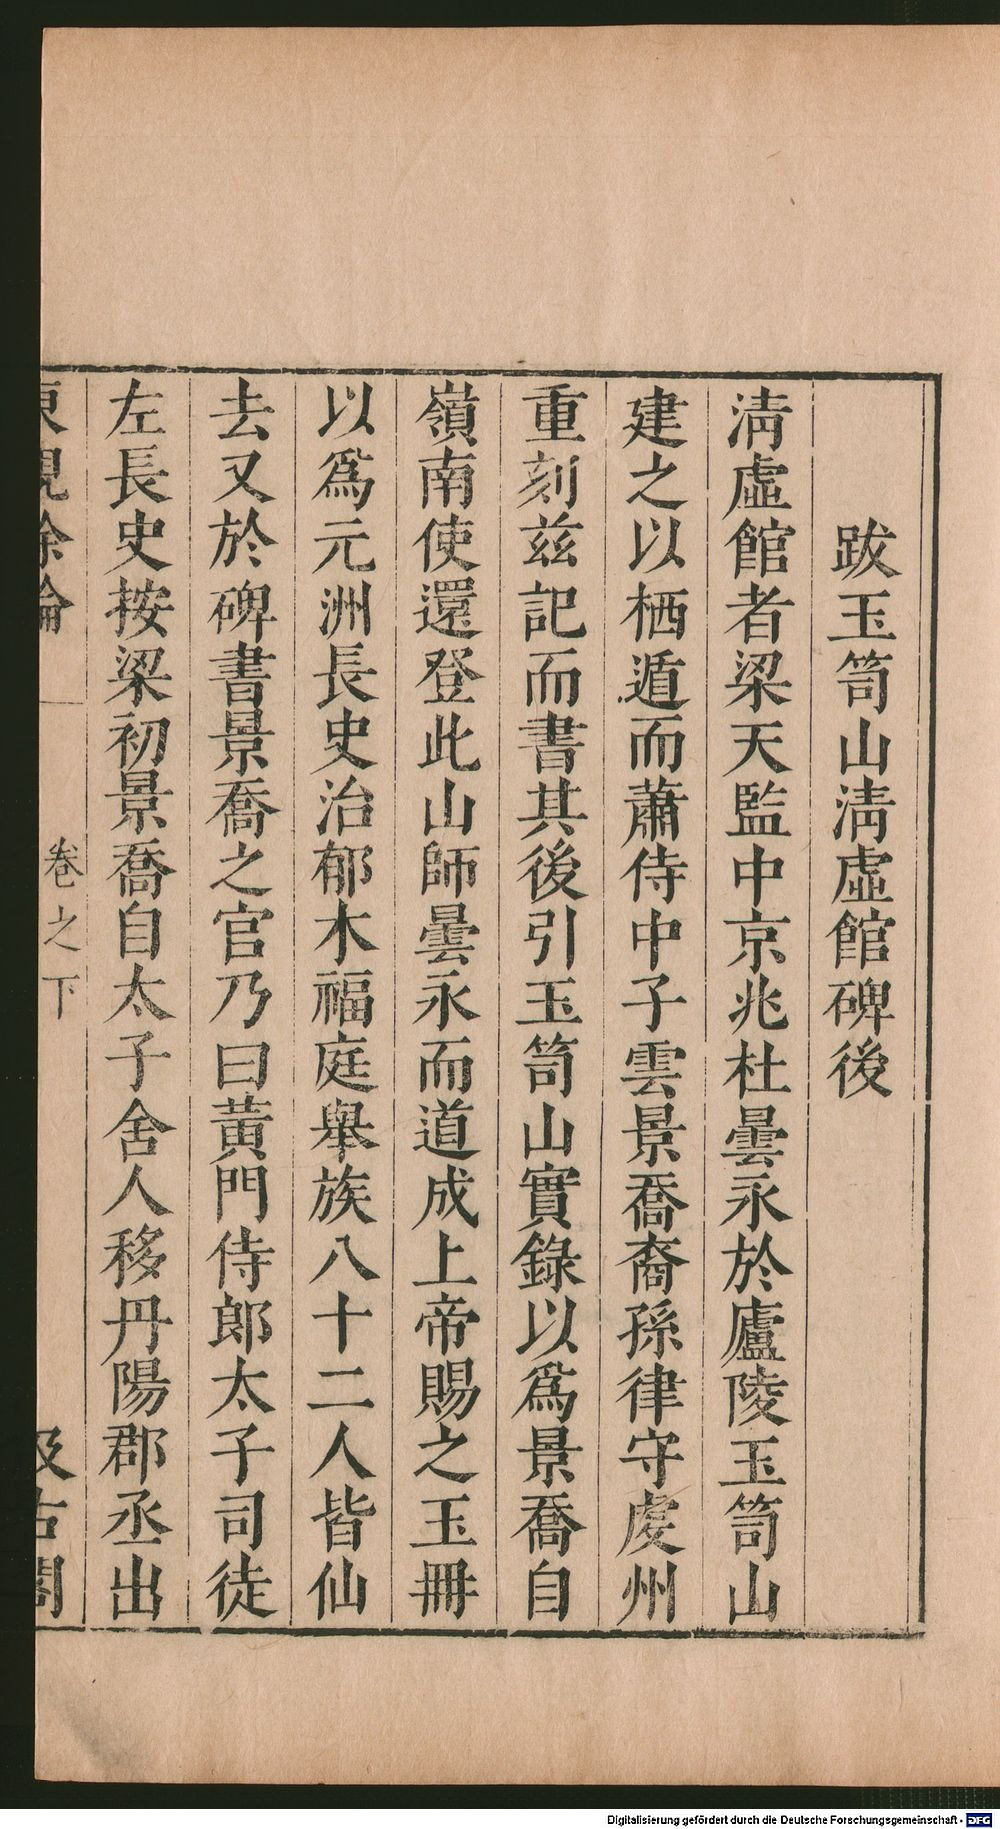 跋玉笥山淸虛館碑後
淸虛館者梁天監中京兆杜曇永於廬陵玉笥山
建之以栖遁而蕭侍中子雲景喬裔孫律守虔州
重刻兹記而書其後引玉笥山實錄以爲景喬自
嶺南使還登此山師曇永而道成上帝賜之玉冊
以爲元洲長史治郁木福庭舉族八十二人皆仙
去又於碑書景喬之官乃曰黃門侍郎太子司徒
左長史按梁初景喬自太子舍人移丹陽郡丞出
東觀餘論 卷之下 汲古閣
Digitalisierung gefördert durch die Deutsche Forschungsgemeinschaft - DFG